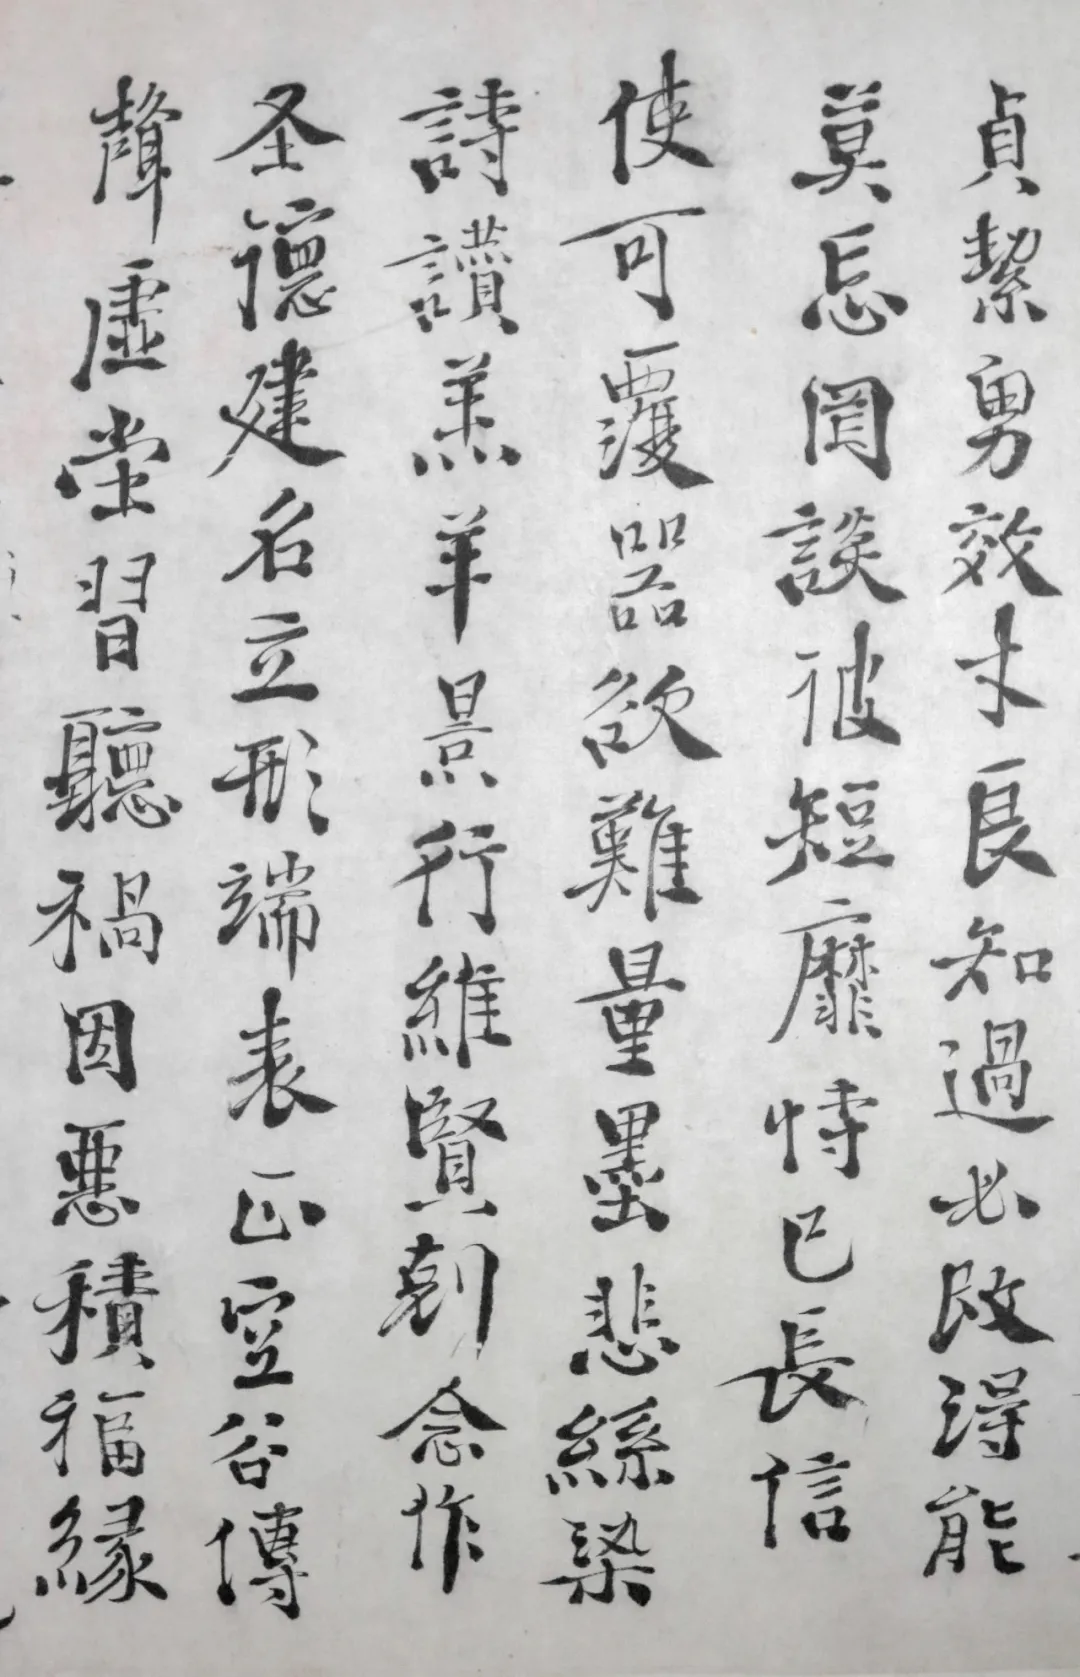 貞絜男效才良知過必改得能
莫忘罔談彼短靡恃己長信
使可覆器欲難量墨悲絲染
詩讚羔羊景行維賢剋念作
圣德建名立形端表正空谷傳
聲虛堂習聽禍因惡積福緣